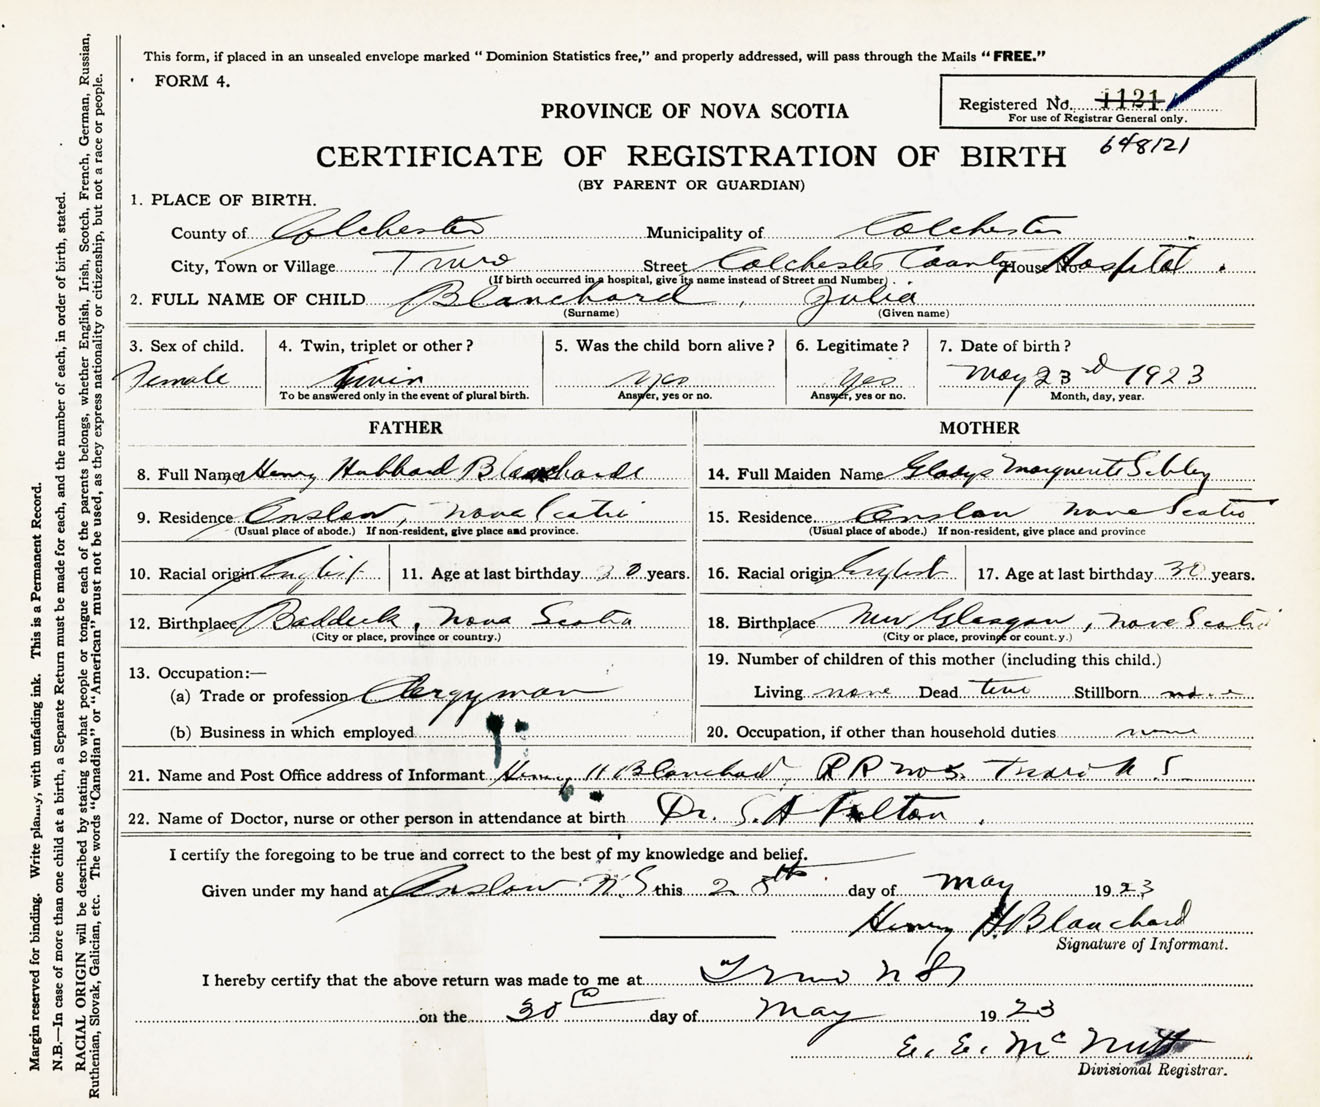 This form, if placed in an unsealed envelope marked “Dominion Statistics free,” and properly addressed, will pass through the Mails “FREE.”
FORM 4.
Registered No. 1121
For use of Registrar General only.
648121
PROVINCE OF NOVA SCOTIA
CERTIFICATE OF REGISTRATION OF BIRTH
(BY PARENT OR GUARDIAN)
1. PLACE OF BIRTH.
County of Colchester Municipality of Colchester
City, Town or Village Truro Street Colchester County House No. Hospital.
(If birth occurred in a hospital, give its name instead of Street and Number)
2. FULL NAME OF CHILD Blanchard, Julia
(Surname) (Given name)
3. Sex of child. 4. Twin, triplet or other? 5. Was the child born alive? 6. Legitimate? 7. Date of birth?
Female Twin yes Yes May 23rd 1923
To be answered only in the event of plural birth. Answer, yes or no. Answer, yes or no. Month, day, year.
FATHER MOTHER
8. Full Name Henry Hubbard Blanchard 14. Full Maiden Name Gladys Marguerite Sibley
9. Residence Onslow, Nova Scotia 15. Residence Onslow Nova Scotia
(Usual place of abode.) If non-resident, give place and province. (Usual place of abode.) If non-resident, give place and province
10. Racial origin English 11. Age at last birthday 30 years. 16. Racial origin English 17. Age at last birthday 30 years.
12. Birthplace Baddeck, Nova Scotia 18. Birthplace New Glasgow, Nova Scotia
(City or place, province or country.) (City or place, province or count.y.)
13. Occupation:— 19. Number of children of this mother (including this child.)
(a) Trade or profession Clergyman Living none Dead Stillborn
(b) Business in which employed 20. Occupation, if other than household duties none
21. Name and Post Office address of Informant Henry H Blanchard, R R No 5. Truro N. S.
22. Name of Doctor, nurse or other person in attendance at birth Dr. S. H Fulton.
I certify the foregoing to be true and correct to the best of my knowledge and belief.
Given under my hand at Onslow N.S this 28th day of May 1923
Henry H. Blanchard
Signature of Informant.
I hereby certify that the above return was made to me at Truro N S
on the 30 day of May 1923
E. E. McNutt
Divisional Registrar.
Margin reserved for binding. Write plainly, with unfading ink. This is a Permanent Record.
N.B.—In case of more than one child at a birth, a Separate Return must be made for each, and the number of each, in order of birth, stated.
RACIAL ORIGIN will be described by stating to what people or tongue each of the parents belongs, whether English, Irish, Scotch, French, German, Russian,
Ruthenian, Slovak, Galician, etc. The words “Canadian” or “American” must not be used, as they express nationality or citizenship, but not a race or people.